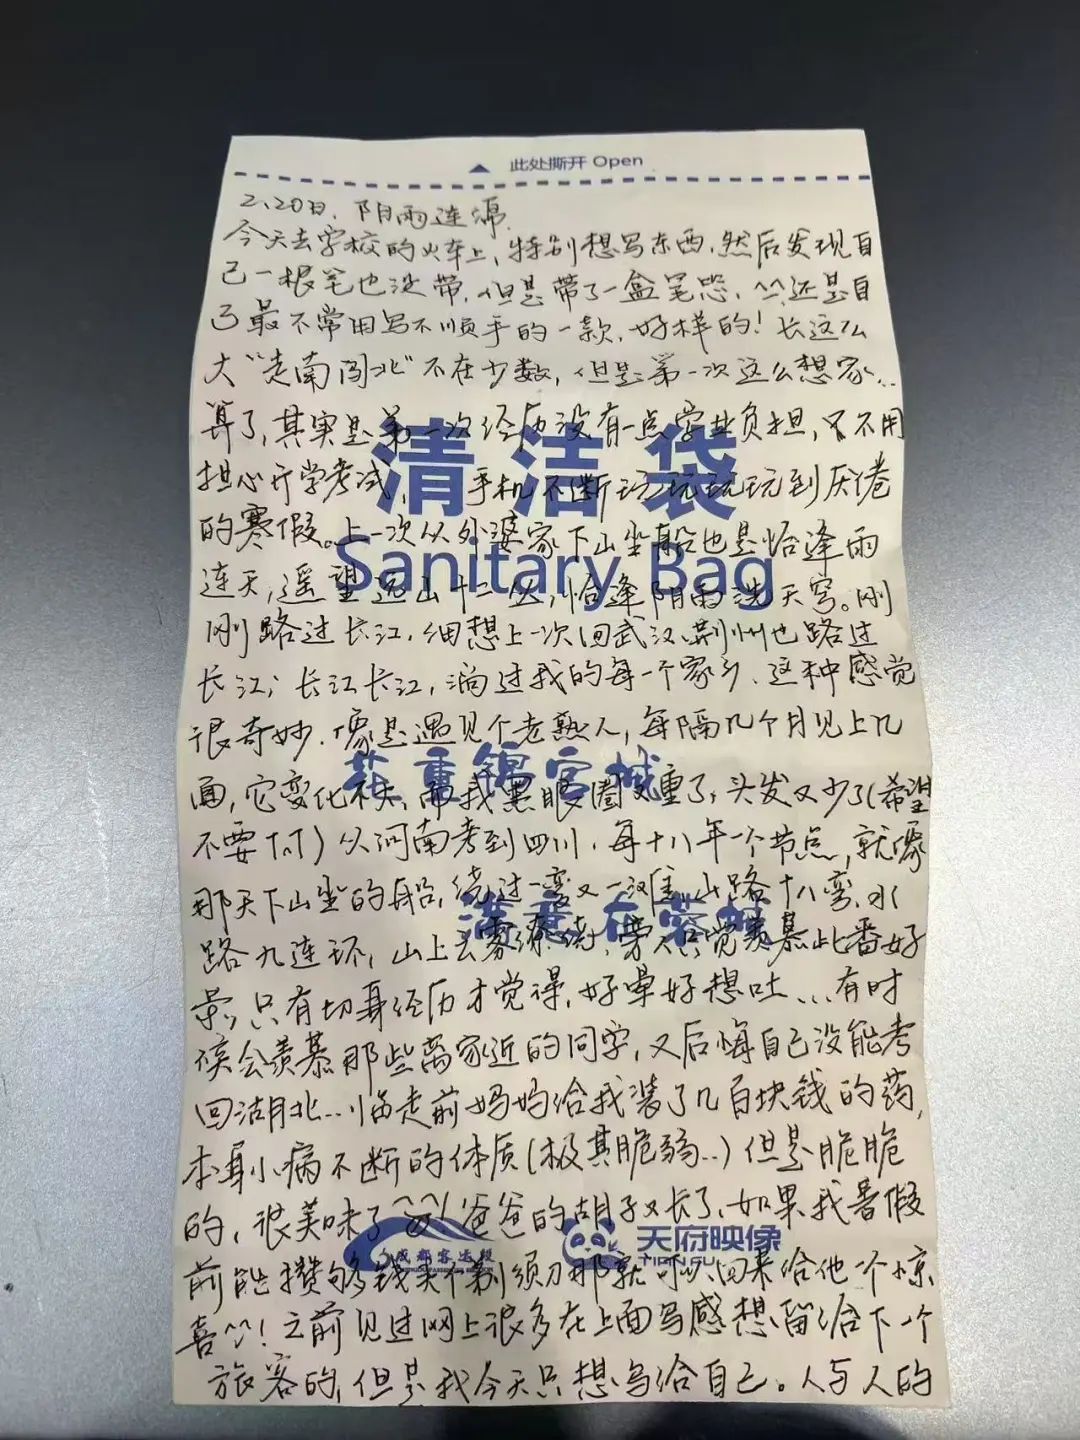 此处撕开 Open
2、20日、阴雨连绵
今天去学校的火车上，特别想写东西，然后发现自
己一根笔也没带，但是带了一盒笔芯、^^还是自
己最不常用写不顺手的一款，好样的！长这么
大“走南闯北”不在少数，但是第一次这么想家...
算了，其实是第一次经历没有一点学业负担，又不用
担心开学考试、手机不断玩玩玩玩到厌倦
清洁袋
的寒假。上一次从外婆家下山坐船也是恰逢雨
Sanitary Bag
连天，遥望远山十二丛，恰逢阴雨洗天穹。刚
刚路过长江，细想上一次回武汉、荆州也路过
长江，长江长江，淌过我的每一个家乡、这种感觉
很奇妙、像是遇见个老熟人，每隔几个月见上几
花重锦官城
面，它变化不大，而我黑眼圈又重了，头发又少了（希望
不要TAT）从河南考到四川，每十八年一个节点，就像
那天下山坐的船，绕过一弯又一滩，山路十八弯，水
满意在蓉城
路九连环，山上云雾缭绕，旁人只觉羡慕此番好
景，只有切身经历才觉得，好晕好想吐...有时
候会羡慕那些离家近的同学，又后悔自己没能考
回湖北...临走前妈妈给我装了几百块钱的药，
本身小病不断的体质（极其脆弱..）但是脆脆
的，很美味了^^！爸爸的胡子又长了，如果我暑假
成都客运段
天府映像
TIANFU
前能攒够钱买个剃须刀那就可以回来给他一个惊
喜^^！之前见过网上很多在上面写感想留给下一个
旅客的，但是我今天只想写给自己。人与人的